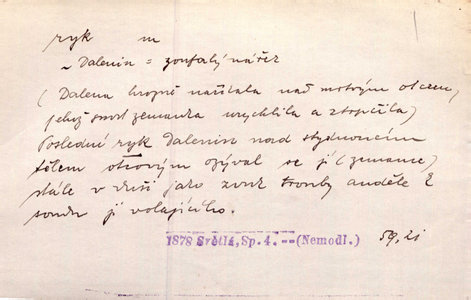 ryk m
~ Dalenin = zoufalý nářek
(Dalena hrozně naříkala nad mrtvým otcem,
jehož smrt zemanka urychlila a ztrpčila)
Poslední ryk Dalenin nad stydnoucím
tělem otcovým ozýval se jí (zemance)
stále v uších jako zvuk trouby anděle k
soudu ji volajícího.
1878 Světlá, Sp. 4. -- (Nemodl.) 59, 21